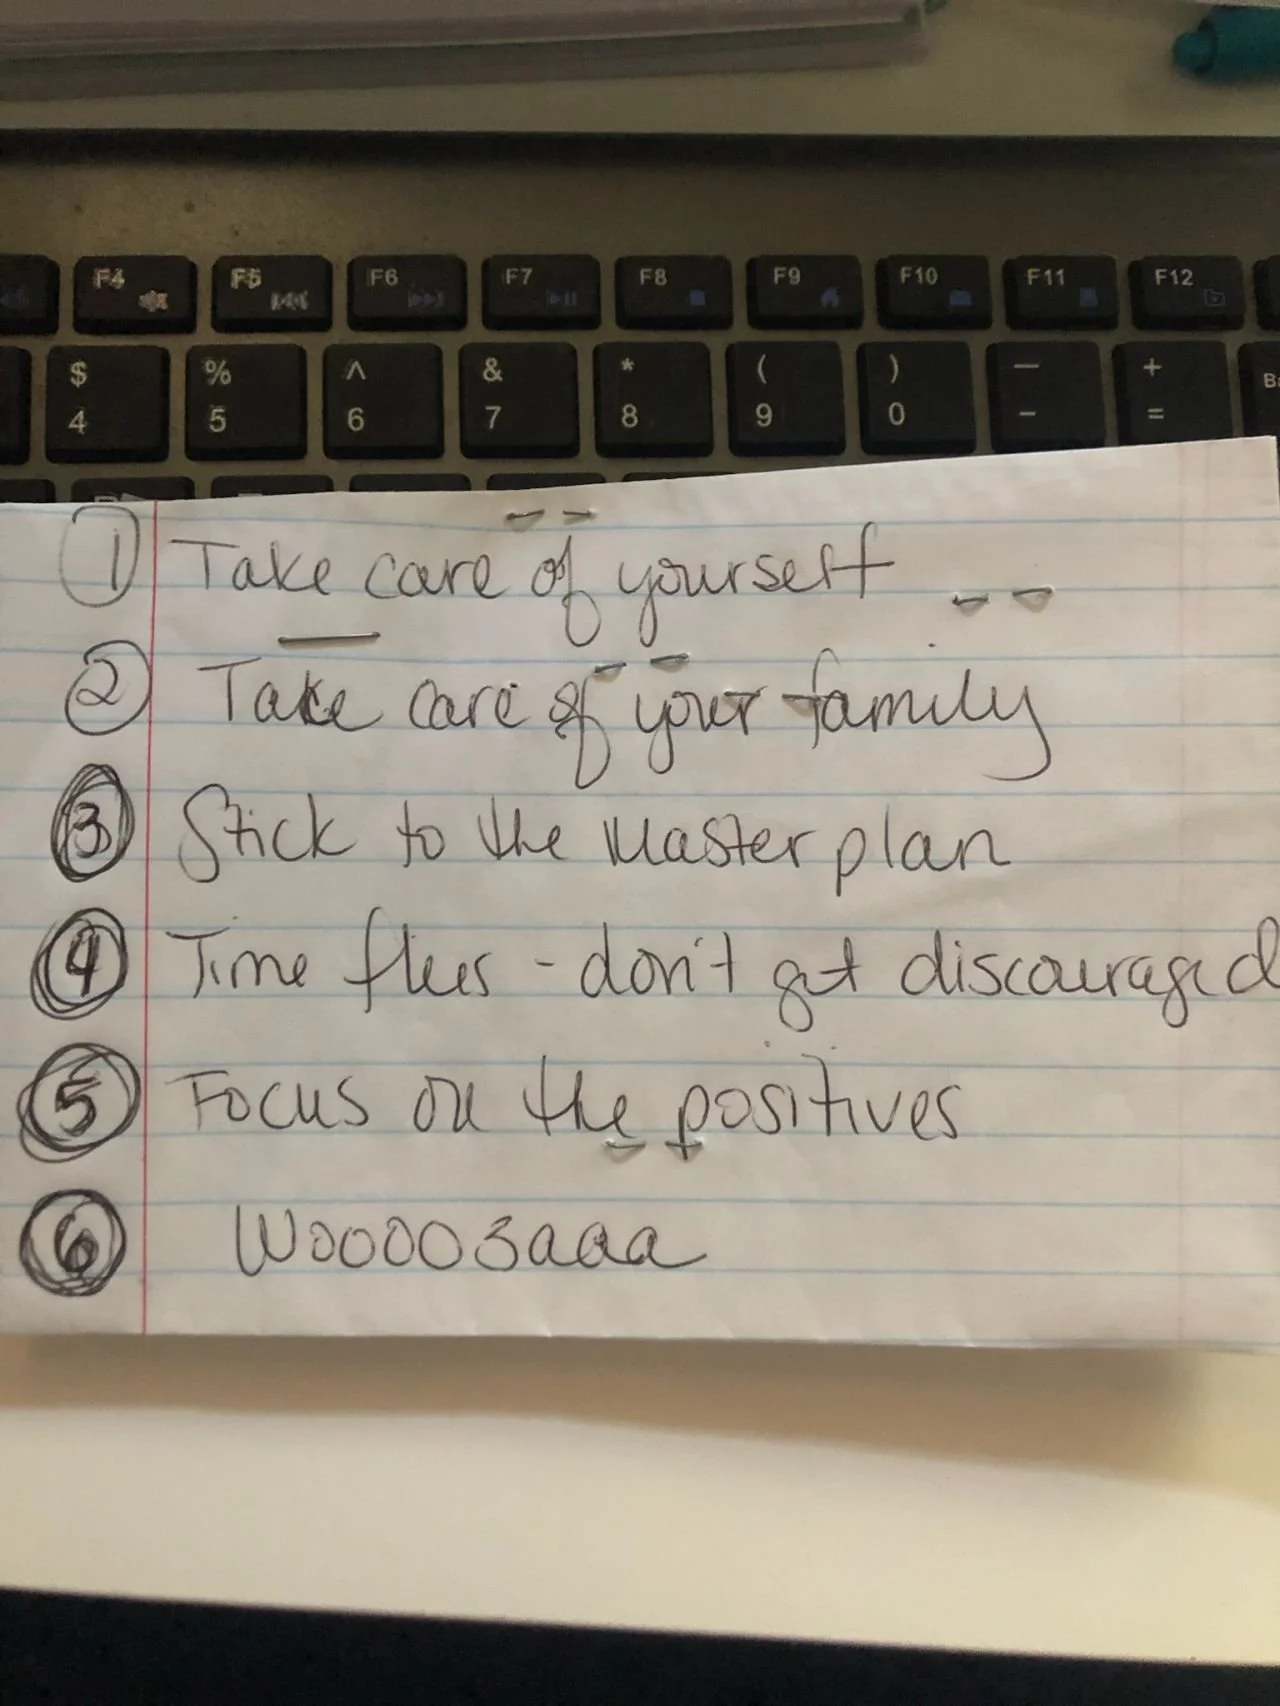 F4 F5 F6 F7 F8 F9 F10 F11 F12
$ % ^ & * ( ) — +
4 5 6 7 8 9 0 - =
1 Take care of yourself
2 Take care of your family
3 Stick to the Master plan
4 Time flies - don't get discouraged
5 Focus on the positives
6 Woooosaaa